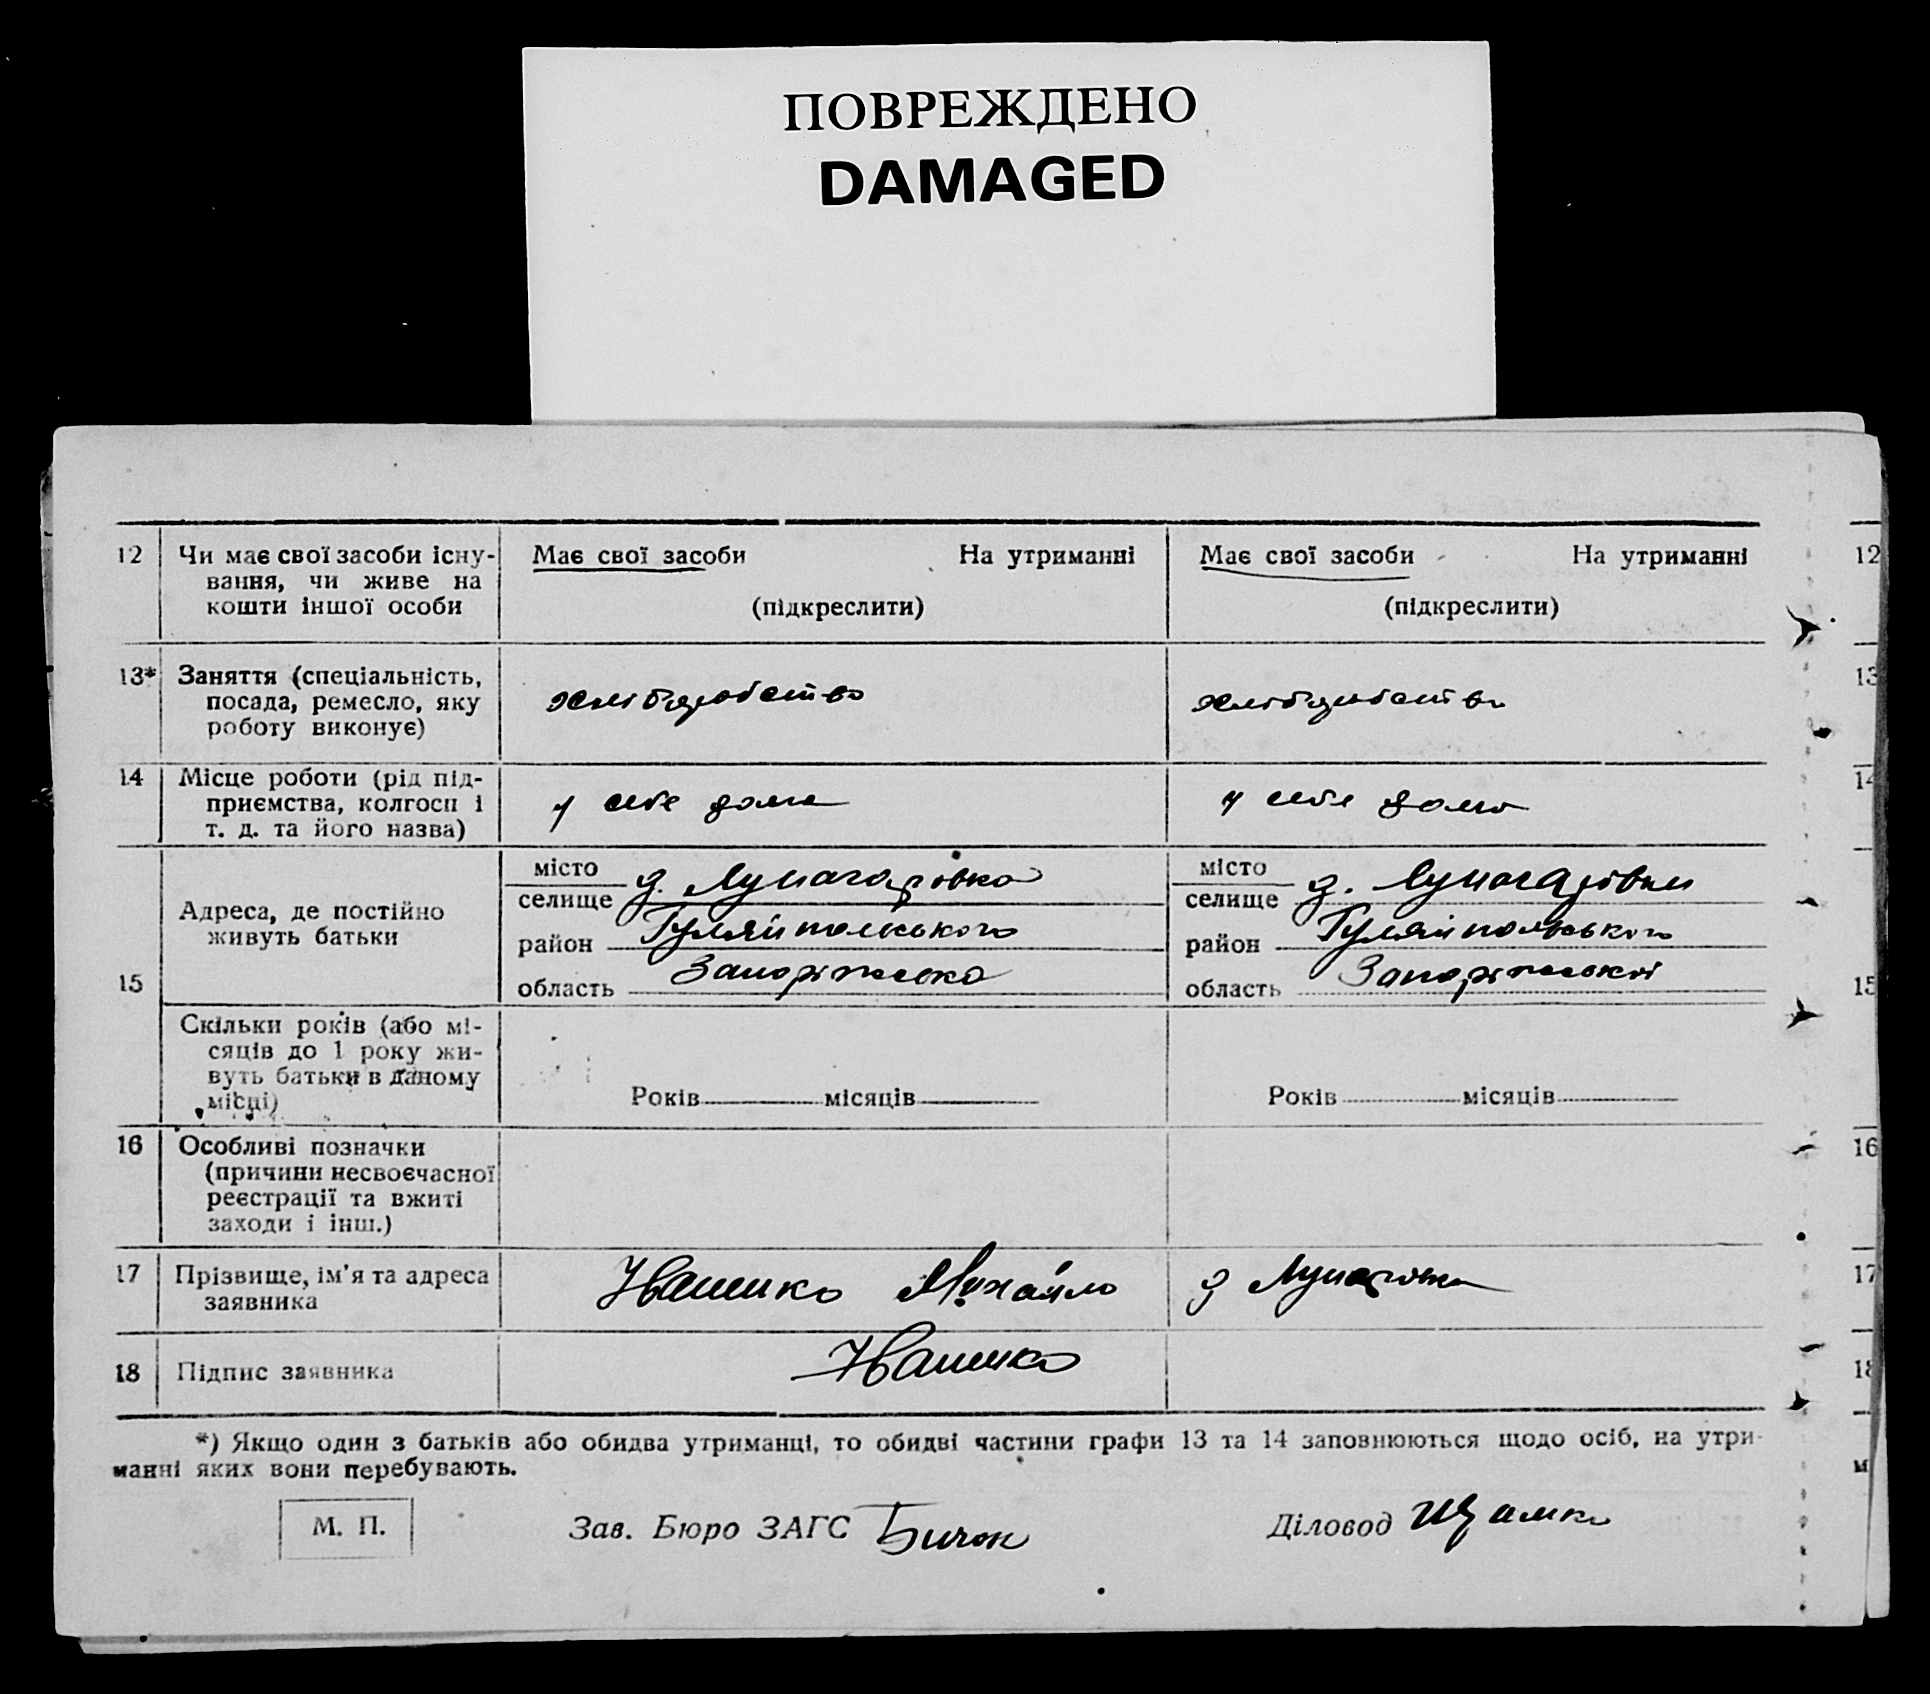 ПОВРЕЖДЕНО
DAMAGED
12 Чи має свої засоби існу- Має свої засоби На утриманні Має свої засоби На утриманні 12
вання, чи живе на
кошти іншої особи (підкреслити) (підкреслити)
13* Заняття (спеціальність, 13
посада, ремесло, яку хліборобство хліборобство
роботу виконує)
14 Місце роботи (рід під- 14
приємства, колгосп і у себе дома у себе дома
т. д. та його назва)
місто д. Луначарівка місто д. Луначарівки
Адреса, де постійно селище селище
живуть батьки район Гуляйпольського район Гуляйпольського
15 область Запоріжська область Запоріжської 15
Скільки років (або мі-
сяців до 1 року жи-
вуть батьки в даному
місці) Років місяців Років місяців
16 Особливі позначки 16
(причини несвоєчасної
реєстрації та вжиті
заходи і інш.)
17 Прізвище, ім'я та адреса Іващенко Михайло д 17
заявника
18 Підпис заявника 18
*) Якщо один з батьків або обидва утриманці, то обидві частини графи 13 та 14 заповнюються щодо осіб, на утри-
манні яких вони перебувають. м
М. П. Зав. Бюро ЗАГС Бичок Діловод